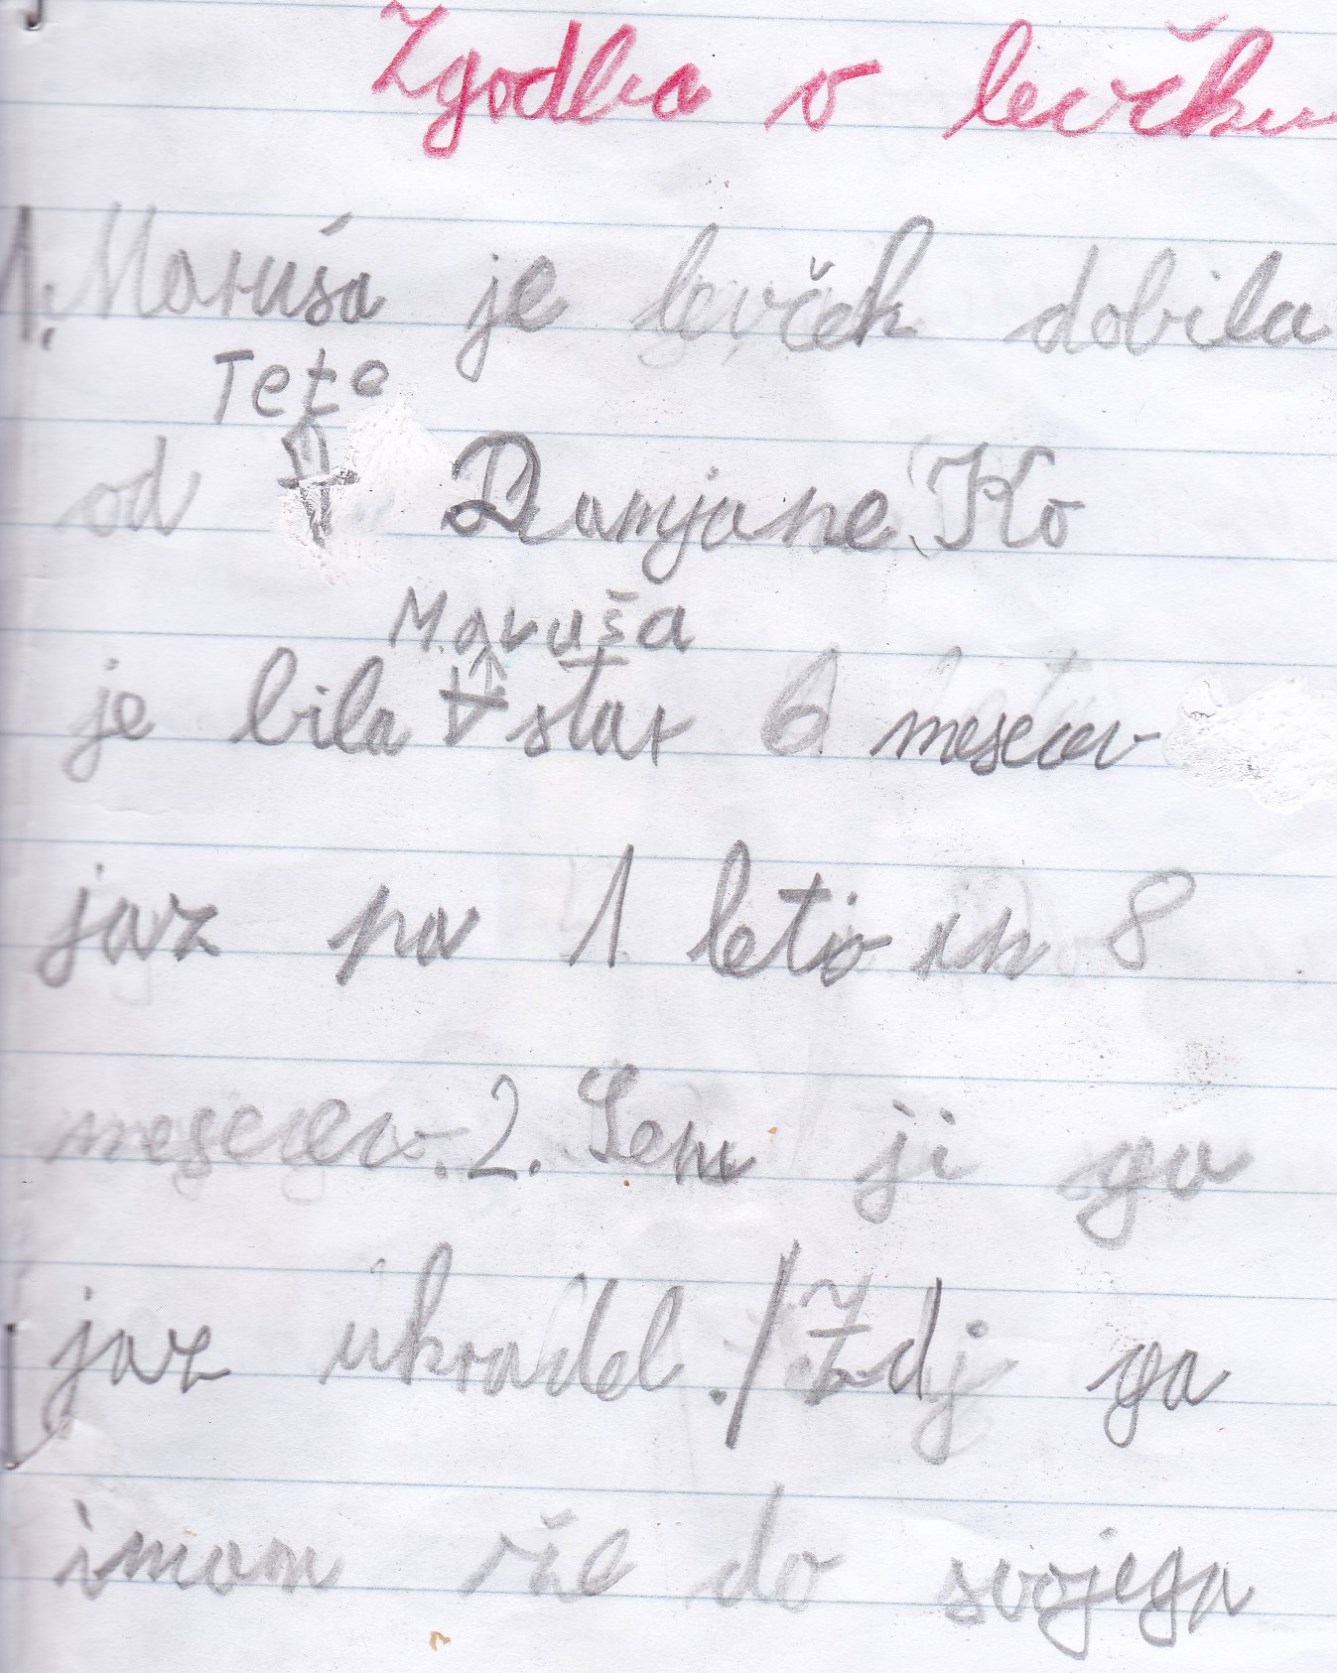 Zgodba o levčku
1. Maruša je levček dobila
Tete
od Damjane. Ko
Maruša
je bila star 6 mesecev
jaz pa 1 leto in 8
mesecev. 2. Sem ji ga
jaz ukradel. / Zdj ga
imam že do svojega